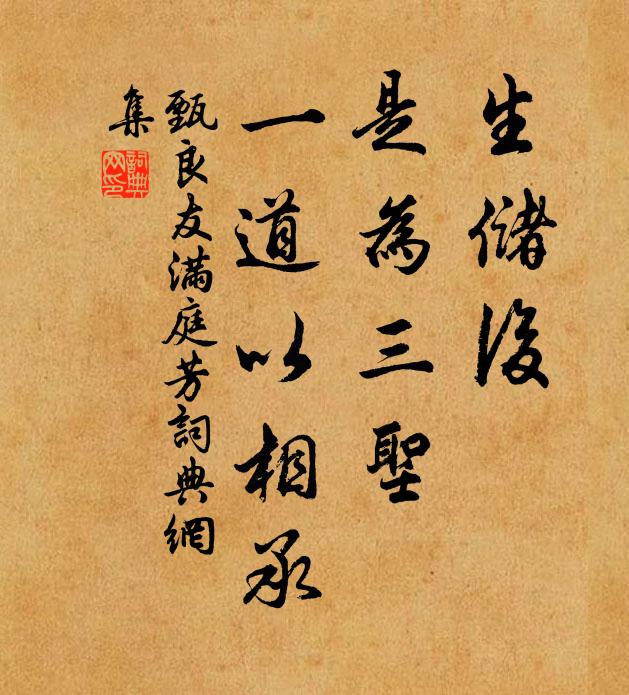 生儲後
是為三聖
一道以相承
甄良友滿庭芳詞典網
集
詞典
网印